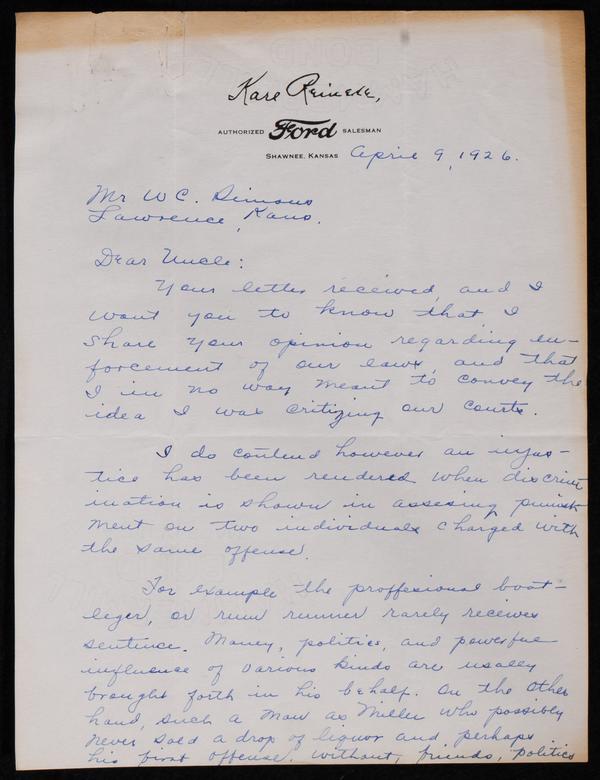 Karl Reinecke,
AUTHORIZED Ford SALESMAN
SHAWNEE, KANSAS April 9, 1926.
Mr W C. Simons
Lawrence, Kans.
Dear Uncle:
Your letter received, and I
want you to know that I
share your opinion regarding en-
forcement of our laws, and that
I in no way meant to convey the
idea I was critizing our courts.
I do contend however an injus-
tice has been rendered when discrim
ination is shown in assesing punish
ment on two individuals charged with
the same offense.
For example the proffesional boot-
leger, or rum runner rarely receives
sentence. Money, politics, and powerful
influence of various kinds are usally
brought forth in his behalf. On the other
hand, such a man as Miller who possibly
never sold a drop of liquor and perhaps
his first offense. without, friends, politics